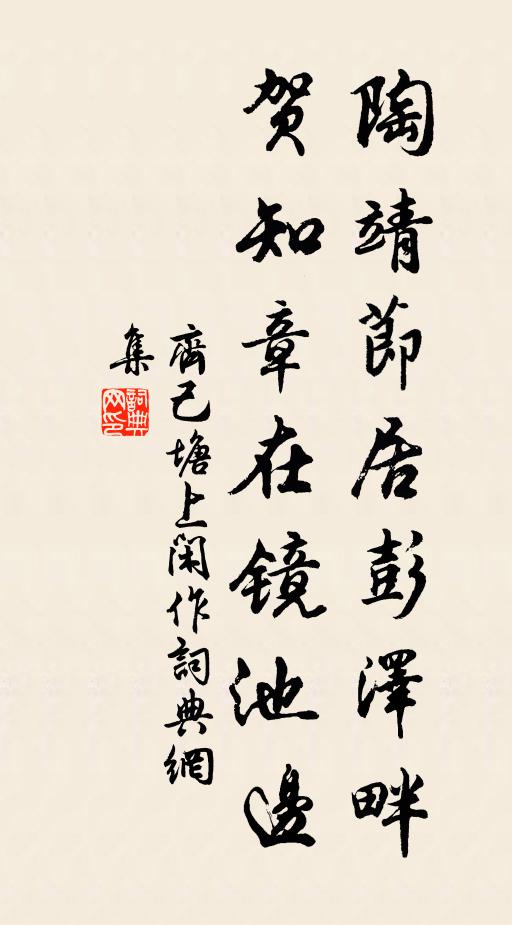 陶靖節居彭澤畔
贺知章在镜池邊
齊己塘上闲作詞典網
集
詞典网印